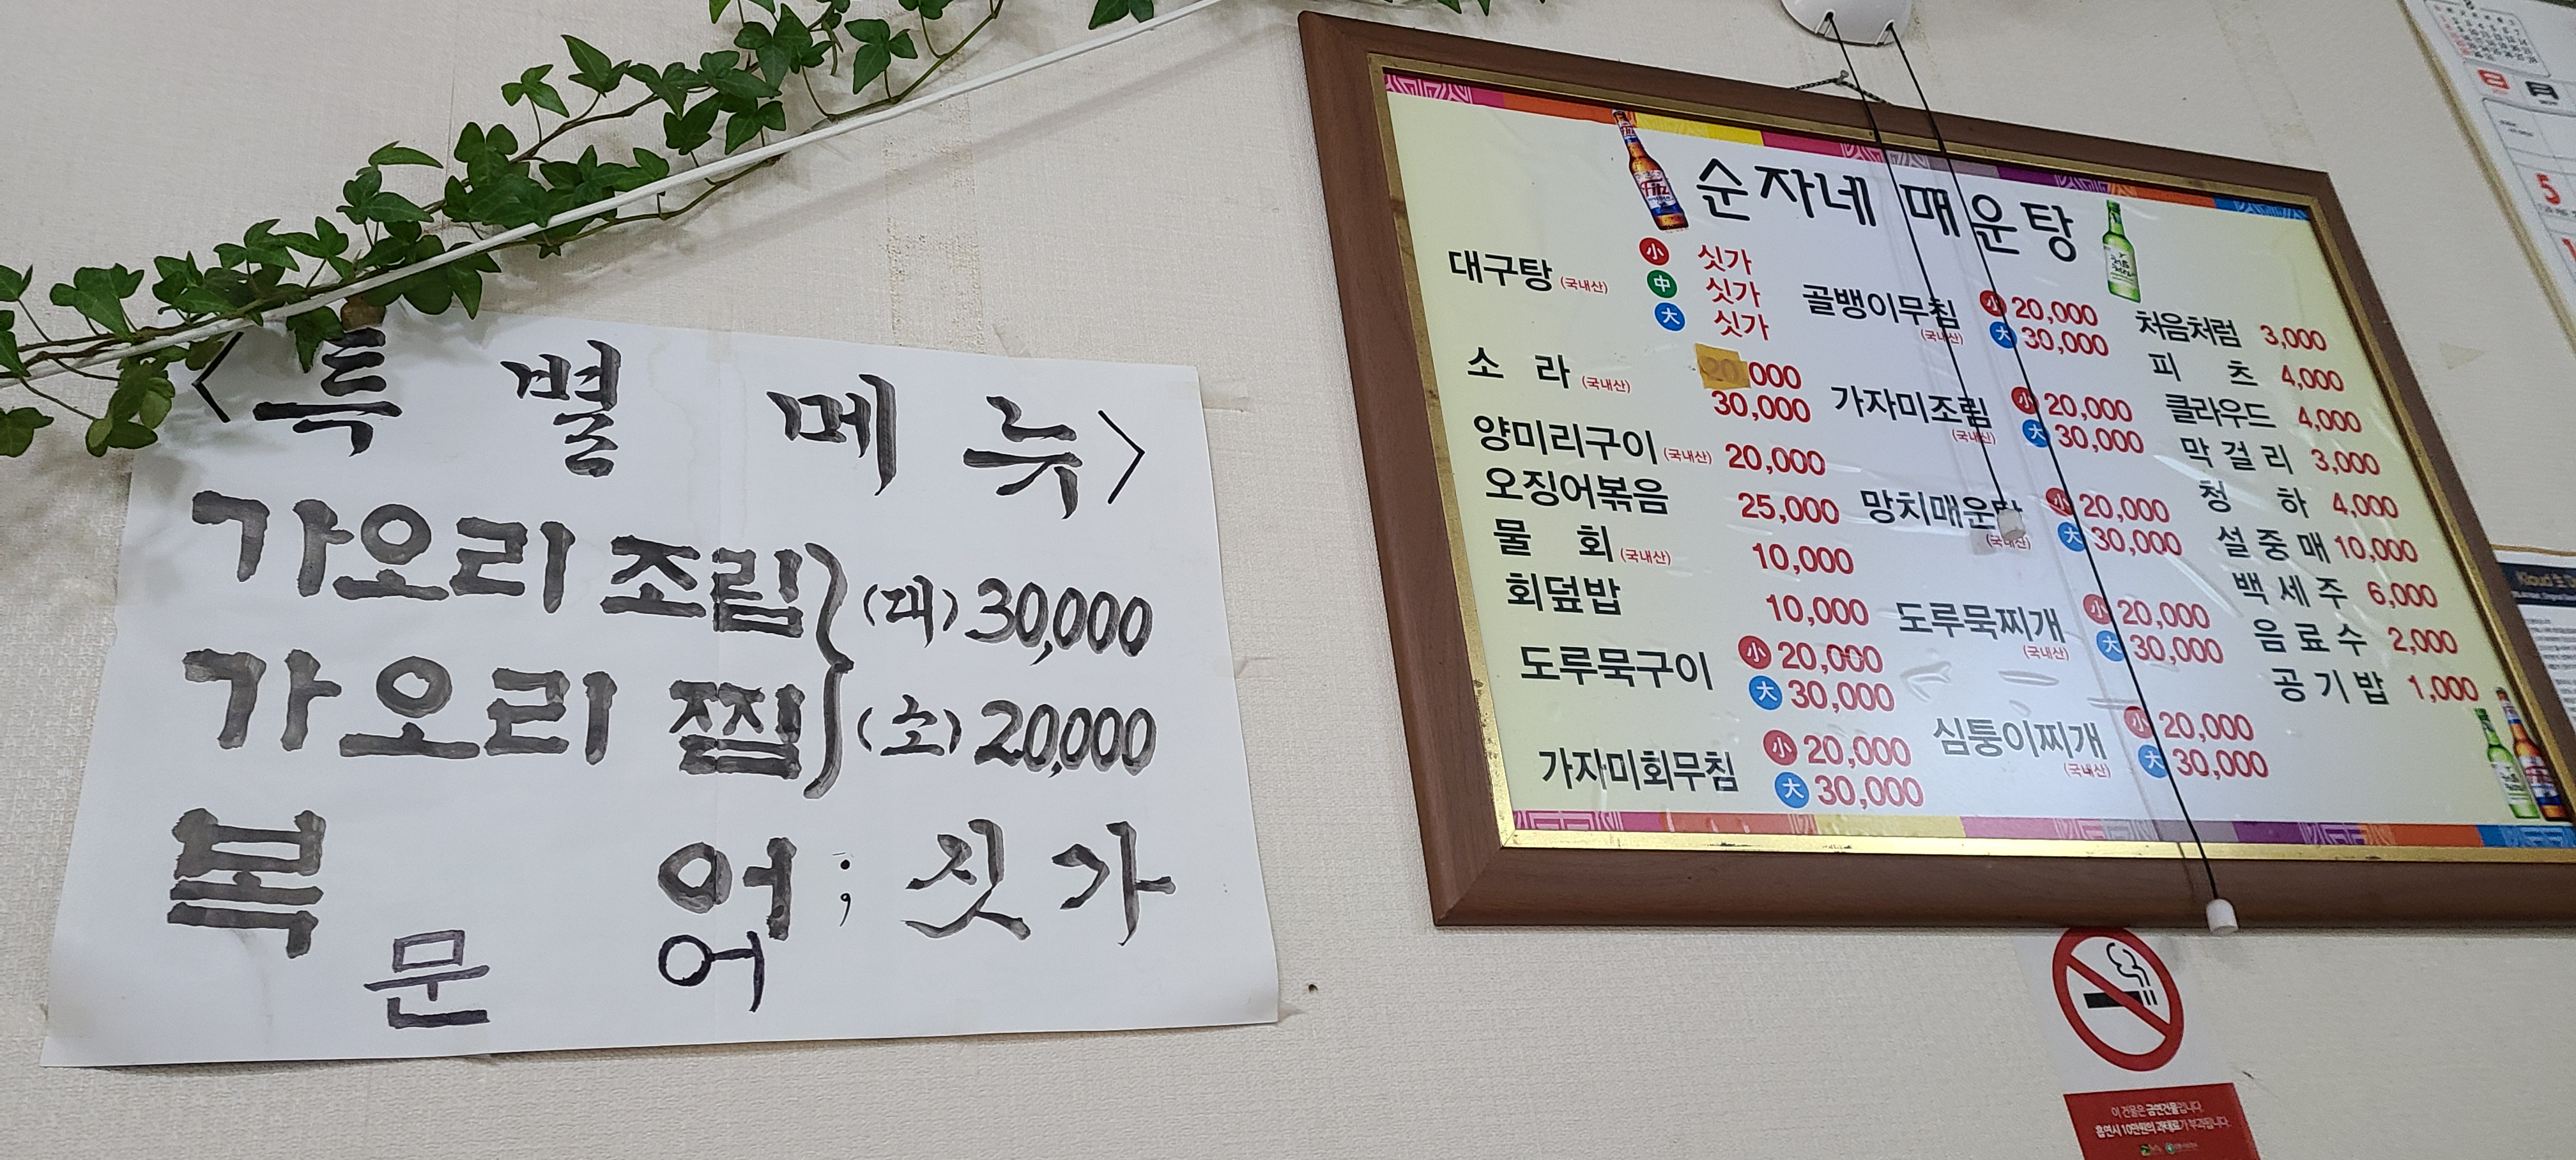 <특별메뉴>
가오리조림
가오리찜
(대) 30,000
(소) 20,000
복어 ; 싯가
문어
순자네 매운탕
대구탕 (국내산) 小 싯가
中 싯가
大 싯가
소라 (국내산) 20,000
30,000
양미리구이 (국내산) 20,000
오징어볶음 25,000
물회 (국내산) 10,000
회덮밥 10,000
도루묵구이 小 20,000
大 30,000
가자미회무침 小 20,000
大 30,000
골뱅이무침 (국내산) 小 20,000
大 30,000
가자미조림 (국내산) 小 20,000
大 30,000
망치매운탕 (국내산) 小 20,000
大 30,000
도루묵찌개 (국내산) 小 20,000
大 30,000
심퉁이찌개 (국내산) 小 20,000
大 30,000
처음처럼 3,000
피츠 4,000
클라우드 4,000
막걸리 3,000
청하 4,000
설중매 10,000
백세주 6,000
음료수 2,000
공기밥 1,000
Fitz
5
이 건물은 금연건물입니다.
흡연시 10만원의 과태료가 부과됩니다.